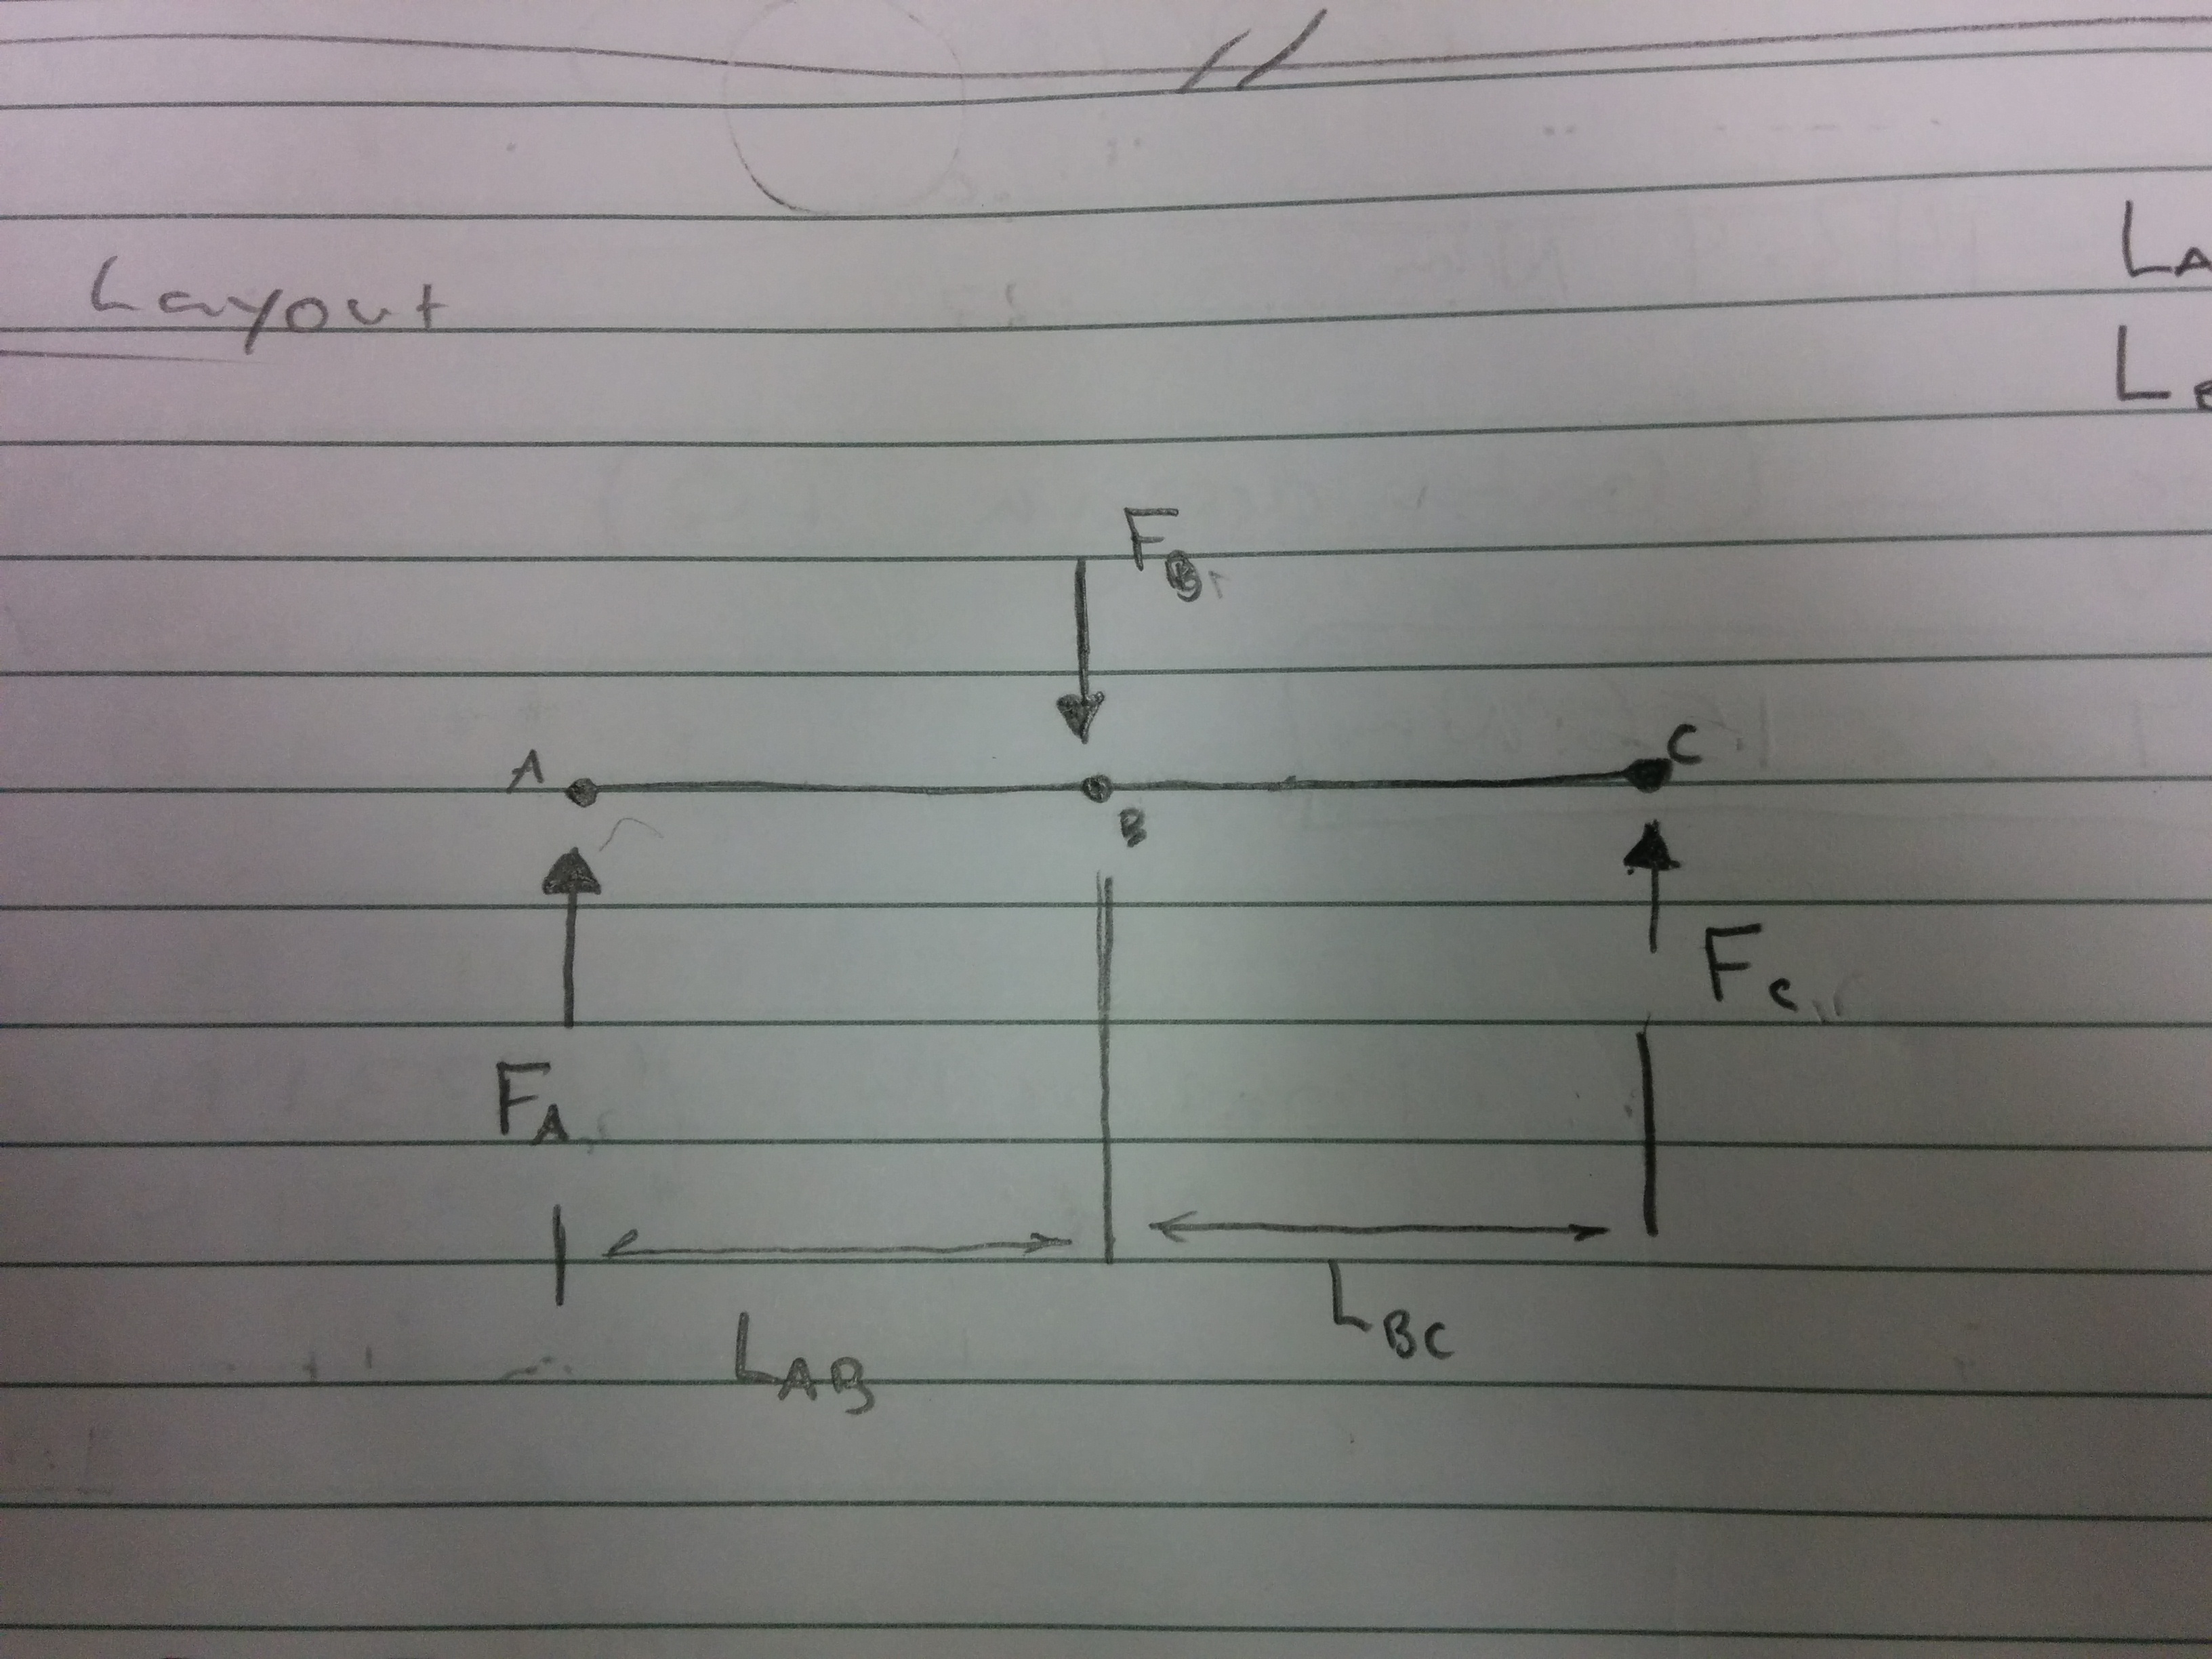 Layout
L A
L
F B
A
C
B
F C
F A
L AB
L BC